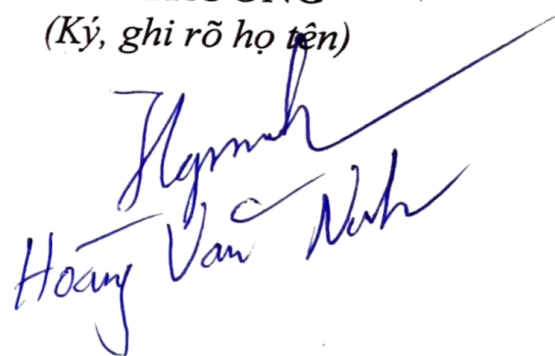 (Ký, ghi rõ họ tên)
Hoàng Văn Ninh